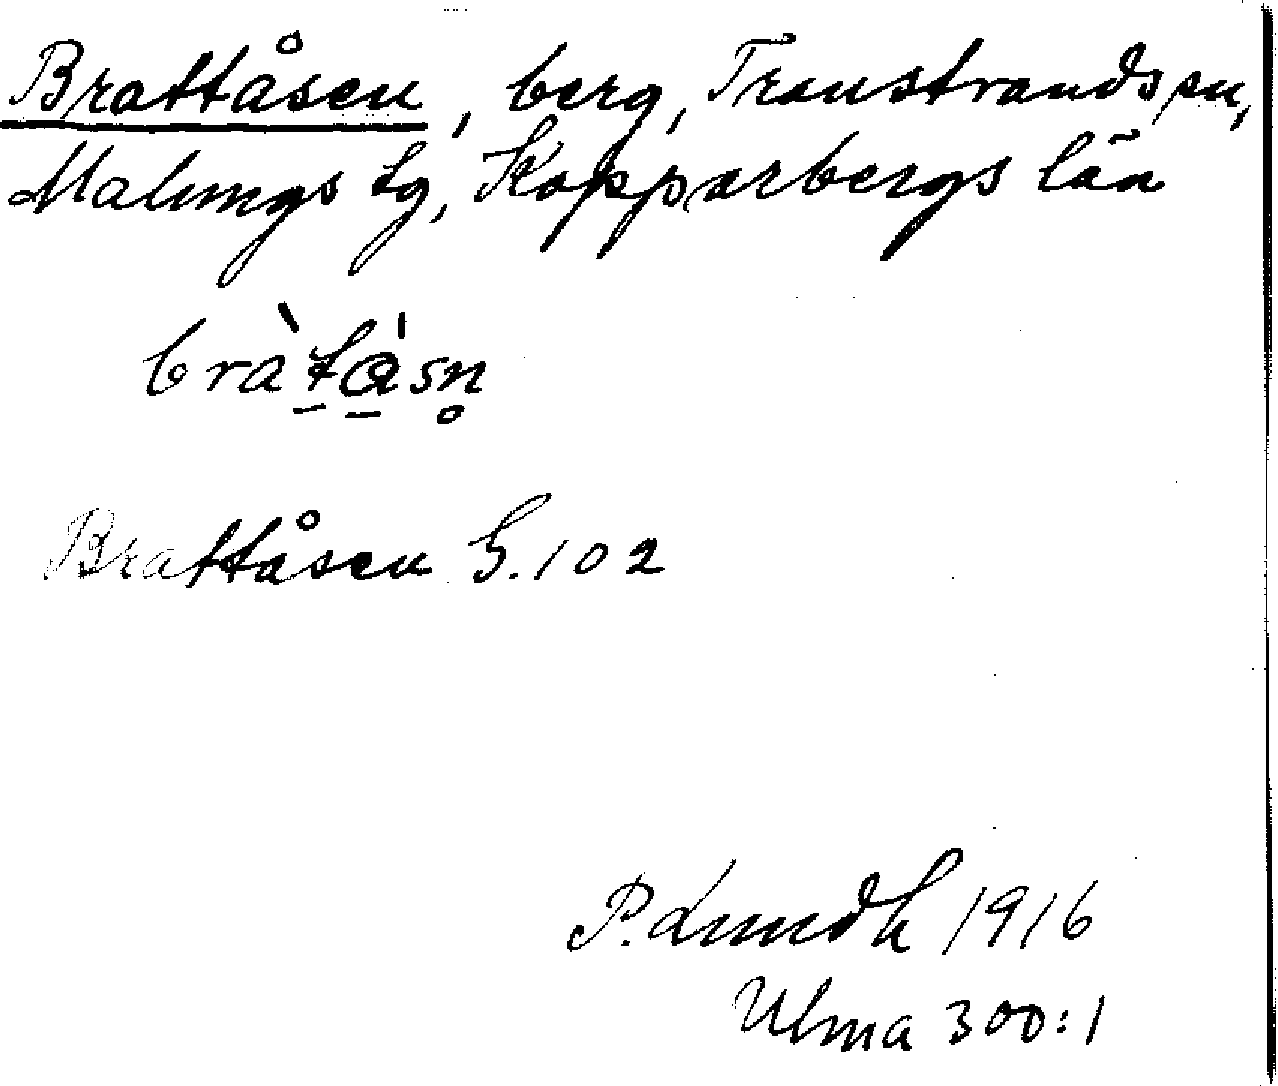 Brattåsen, berg, Transtrands sn,
Malungs tg, Kopparbergs län
Brattåsen G. 102
P. Lundh 1916
Ulma 300:1